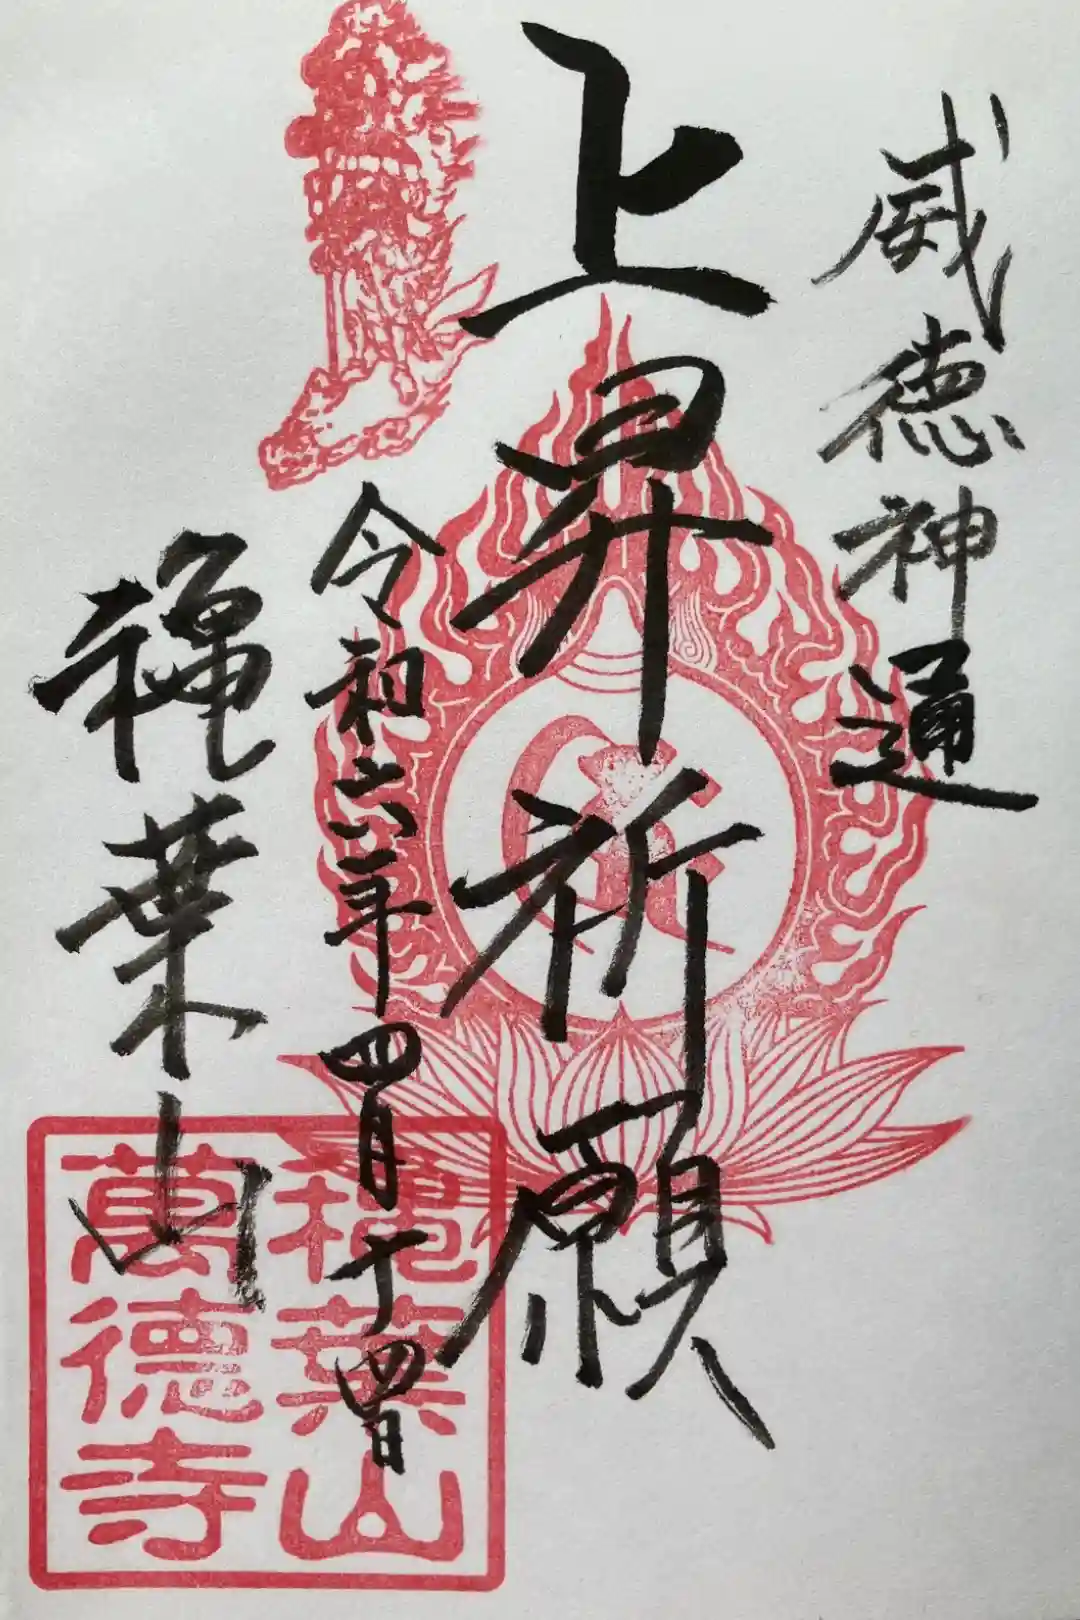 威徳神通
上昇祈願
令和六年四月十四日
穐葉山
穐葉山
萬德寺